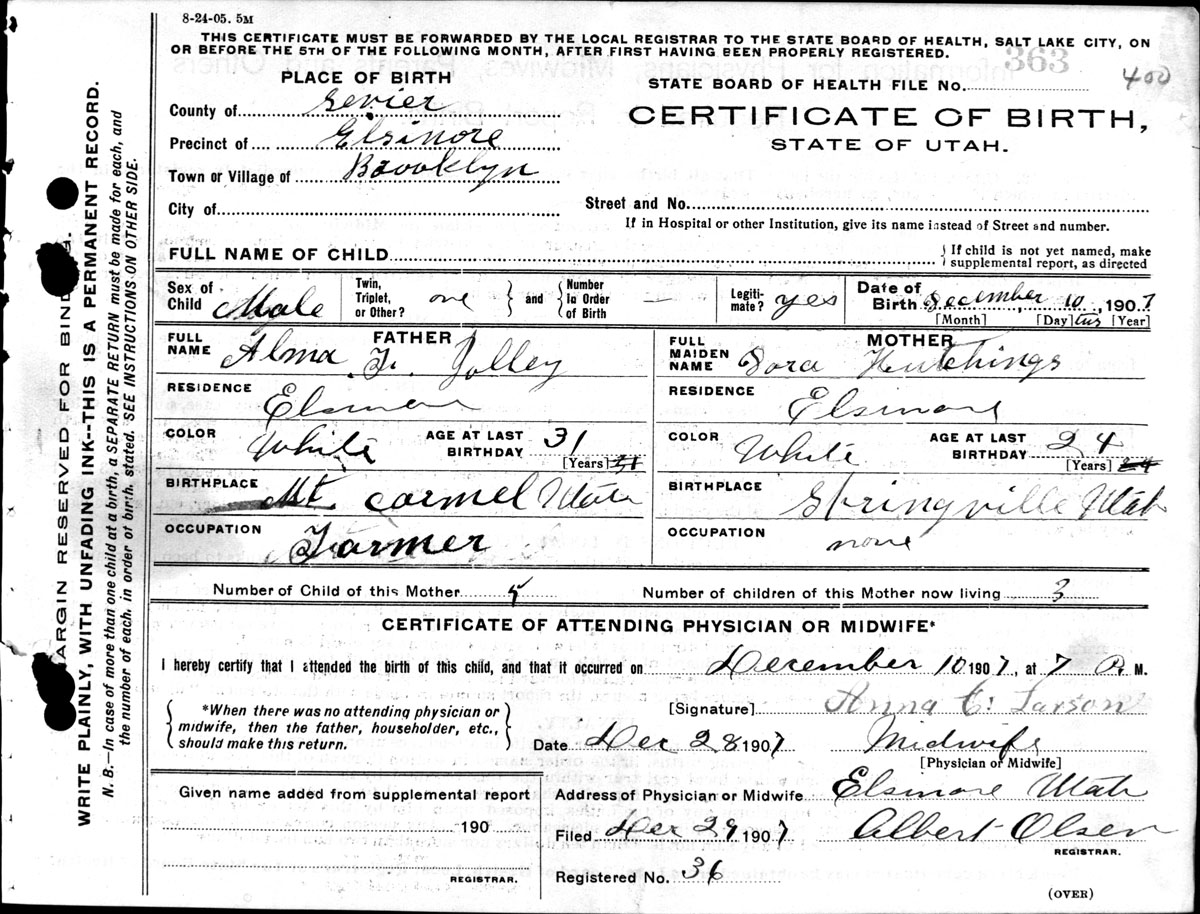 8-24-05. 5M
THIS CERTIFICATE MUST BE FORWARDED BY THE LOCAL REGISTRAR TO THE STATE BOARD OF HEALTH, SALT LAKE CITY, ON
OR BEFORE THE 5TH OF THE FOLLOWING MONTH, AFTER FIRST HAVING BEEN PROPERLY REGISTERED.
363
400
PLACE OF BIRTH
STATE BOARD OF HEALTH FILE No.
County of Sevier
CERTIFICATE OF BIRTH,
Precinct of Elsinore
STATE OF UTAH.
Town or Village of Brooklyn
City of
Street and No.
If in Hospital or other Institution, give its name instead of Street and number.
FULL NAME OF CHILD
{If child is not yet named, make
supplemental report, as directed
Sex of Child Male Twin, Triplet, or Other? one } and { Number In Order of Birth — Legiti-mate? yes Date of Birth December 10, 1907
[Month] [Day] [Year]
FULL NAME FATHER Alma F. Jolley
FULL MAIDEN NAME MOTHER Dora Hutchings
RESIDENCE Elsinore
RESIDENCE Elsinore
COLOR White AGE AT LAST BIRTHDAY 31 [Years] 31
COLOR White AGE AT LAST BIRTHDAY 24 [Years] 24
BIRTHPLACE Mt. Carmel Utah
BIRTHPLACE Springville Utah
OCCUPATION Farmer
OCCUPATION none
Number of Child of this Mother
Number of children of this Mother now living 3
CERTIFICATE OF ATTENDING PHYSICIAN OR MIDWIFE*
I hereby certify that I attended the birth of this child, and that it occurred on December 10 1907, at 7 P. M.
{*When there was no attending physician or
midwife, then the father, householder, etc.,
should make this return.}
[Signature] Anna C. Larson
Date Dec 28 1907 Midwife
[Physician or Midwife]
Given name added from supplemental report
190
REGISTRAR.
Address of Physician or Midwife Elsinore Utah
Filed Dec 29 1907 Albert Olsen
REGISTRAR.
Registered No. 36
(OVER)
MARGIN RESERVED FOR BINDING.
WRITE PLAINLY, WITH UNFADING INK--THIS IS A PERMANENT RECORD.
N. B.—In case of more than one child at a birth, a SEPARATE RETURN must be made for each, and
the number of each, in order of birth, stated. SEE INSTRUCTIONS ON OTHER SIDE.